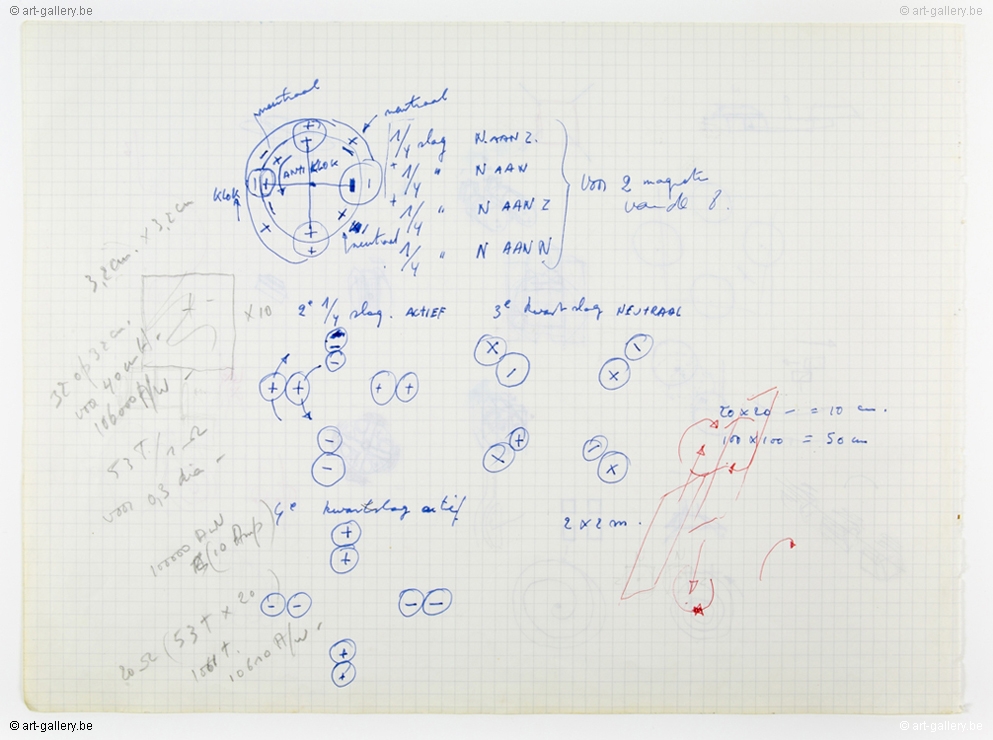 © art-gallery.be
© art-gallery.be
neutraal
neutraal
ANTI KLOK
KLOK
neutraal
1/4 slag N AAN Z.
+ 1/4 " N AAN
+ 1/4 " N AAN Z
1/4 " N AAN N
voor 2 magneten
van de 8.
3,2 cm. x 3,2 cm
x 10
2e 1/4 slag. ACTIEF
3e kwartslag NEUTRAAL
32 op 32 cm.
voor 40 cm
106000 A/W
53 T/1 Ω
voor 0,3 dia -
20 x 20 - = 10 cm.
100 x 100 = 50 cm
4e kwartslag actief
2 x 2 m.
100000 AW
(10 Amp)
20 Ω (53 T x 20)
10610 A/W.
© art-gallery.be
© art-gallery.be